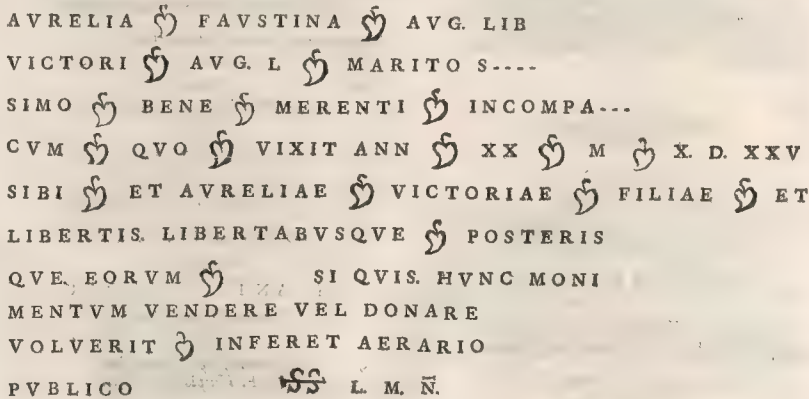 AVRELIA ❦ FAVSTINA ❦ AVG. LIB
VICTORI ❦ AVG. L ❦ MARITO S----
SIMO ❦ BENE ❦ MERENTI ❦ INCOMPA---
CVM ❦ QVO ❦ VIXIT ANN ❦ XX ❦ M ❦ X. D. XXV
SIBI ❦ ET AVRELIAE ❦ VICTORIAE ❦ FILIAE ❦ ET
LIBERTIS. LIBERTABVSQVE ❦ POSTERIS
QVE. EORVM ❦ SI QVIS. HVNC MONI
MENTVM VENDERE VEL DONARE
VOLVERIT ❦ INFERET AERARIO
PVBLICO S̶S̶ L. M. N̄.